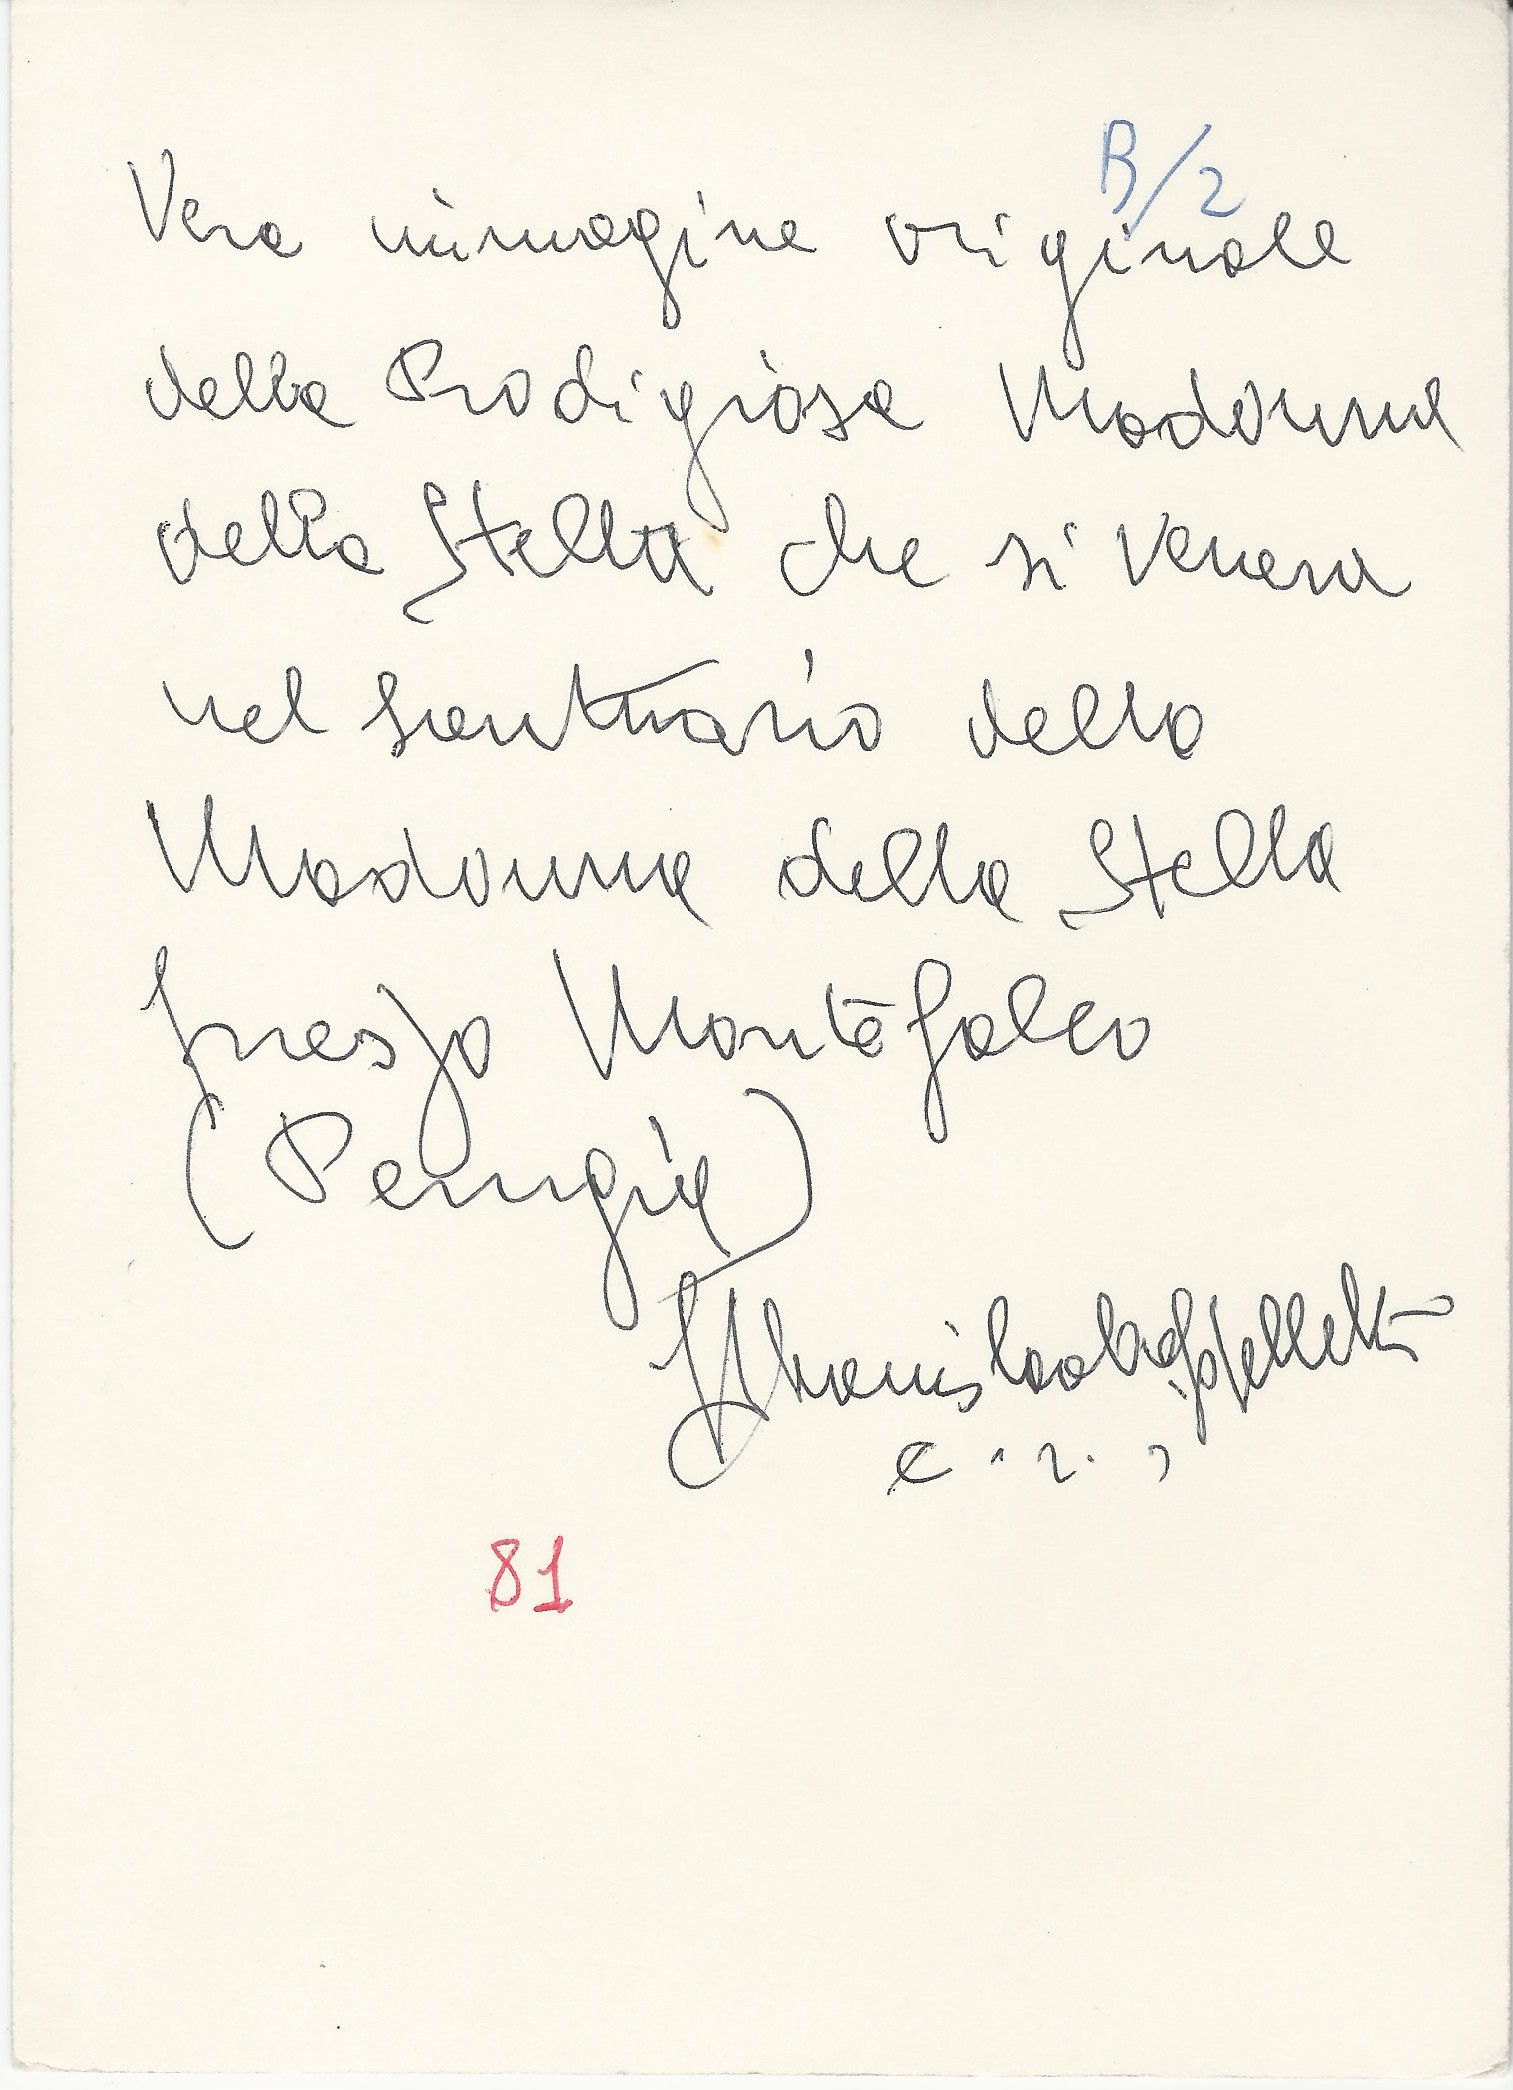 B/2
Vera immagine originale
della Prodigiosa Madonna
della Stella che si venera
nel Santuario della
Madonna della Stella
presso Montefalco
(Perugia)
P. Stanislao Cappelletti
c. p.
81